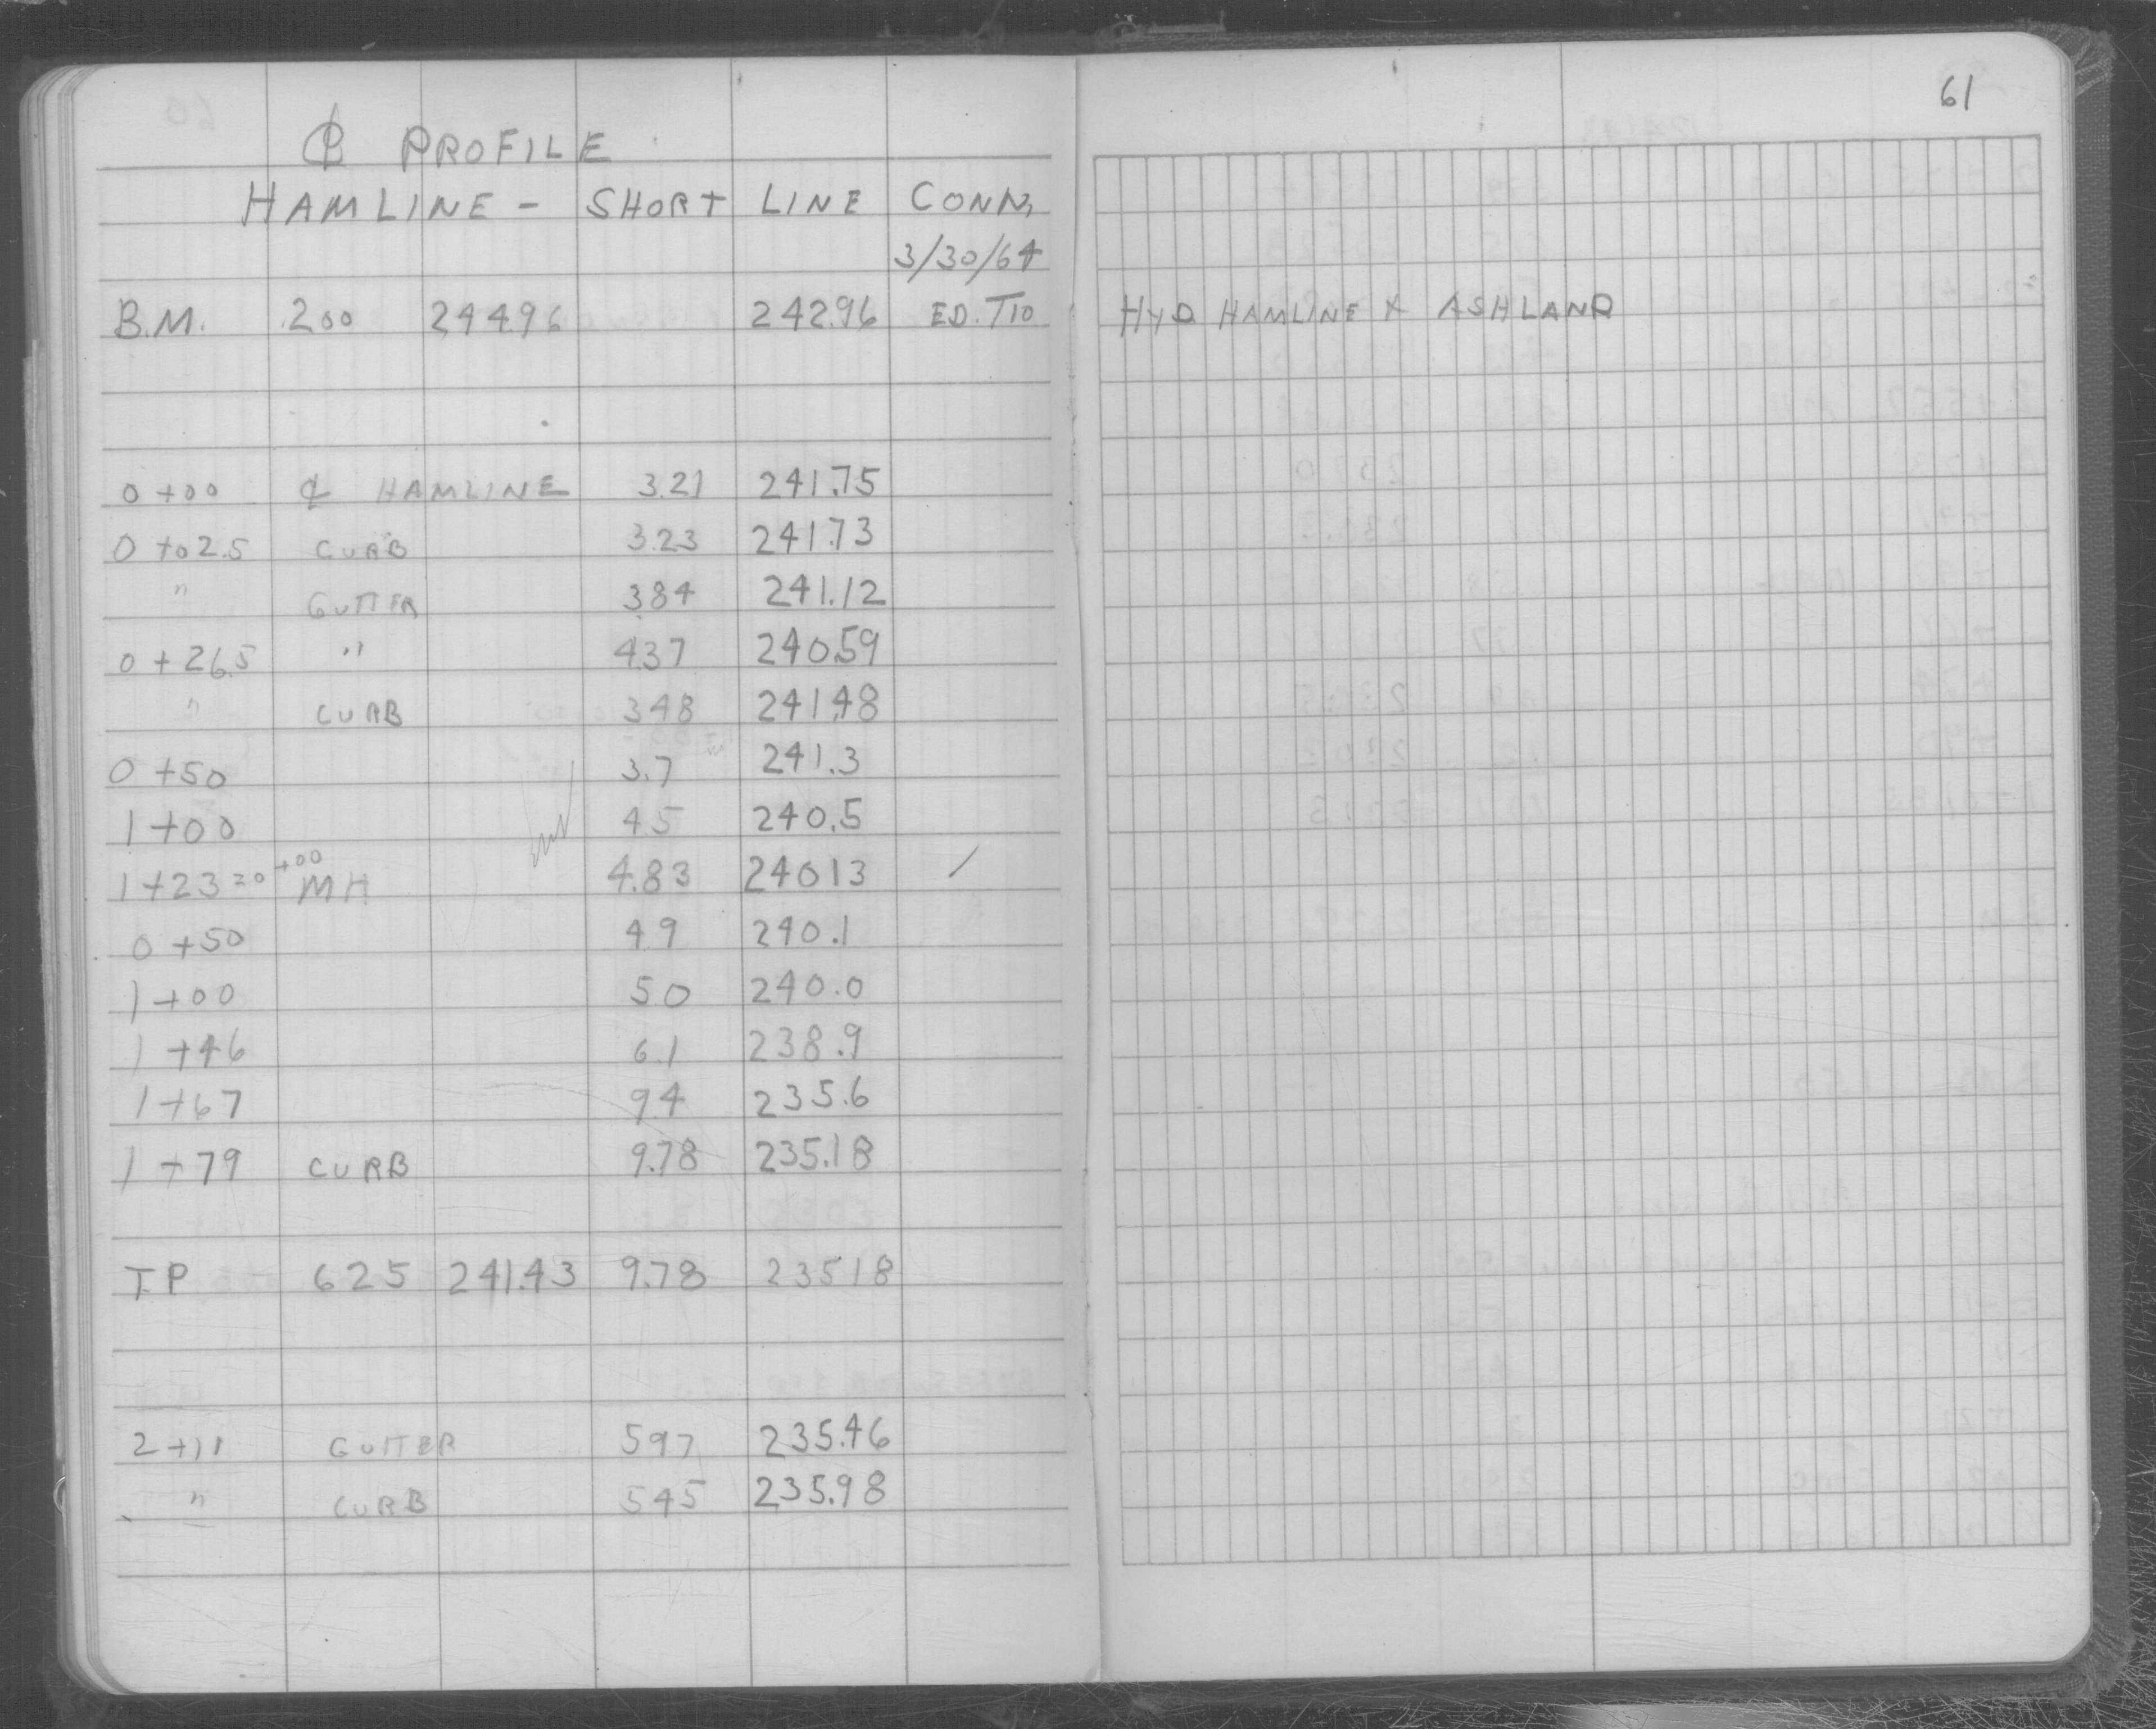 61
℄ PROFILE
HAMLINE - SHORT LINE CONN,
3/30/64
B.M. 200 244.96 242.96 ED. T10 HYD HAMLINE & ASHLAND
0+00 ℄ HAMLINE 3.21 241.75
0+02.5 CURB 3.23 241.73
" GUTTER 384 241.12
0+26.5 " 4.37 240.59
" CURB 348 241.48
0+50 3.7 241.3
1+00 45 240.5
1+23=0+00 MH 4.83 24013 /
0+50 49 240.1
1+00 50 240.0
1+46 61 238.9
1+67 94 235.6
1+79 CURB 9.78 235.18
T.P 625 241.43 9.78 23518
2+11 GUTTER 597 235.46
" CURB 545 235.98